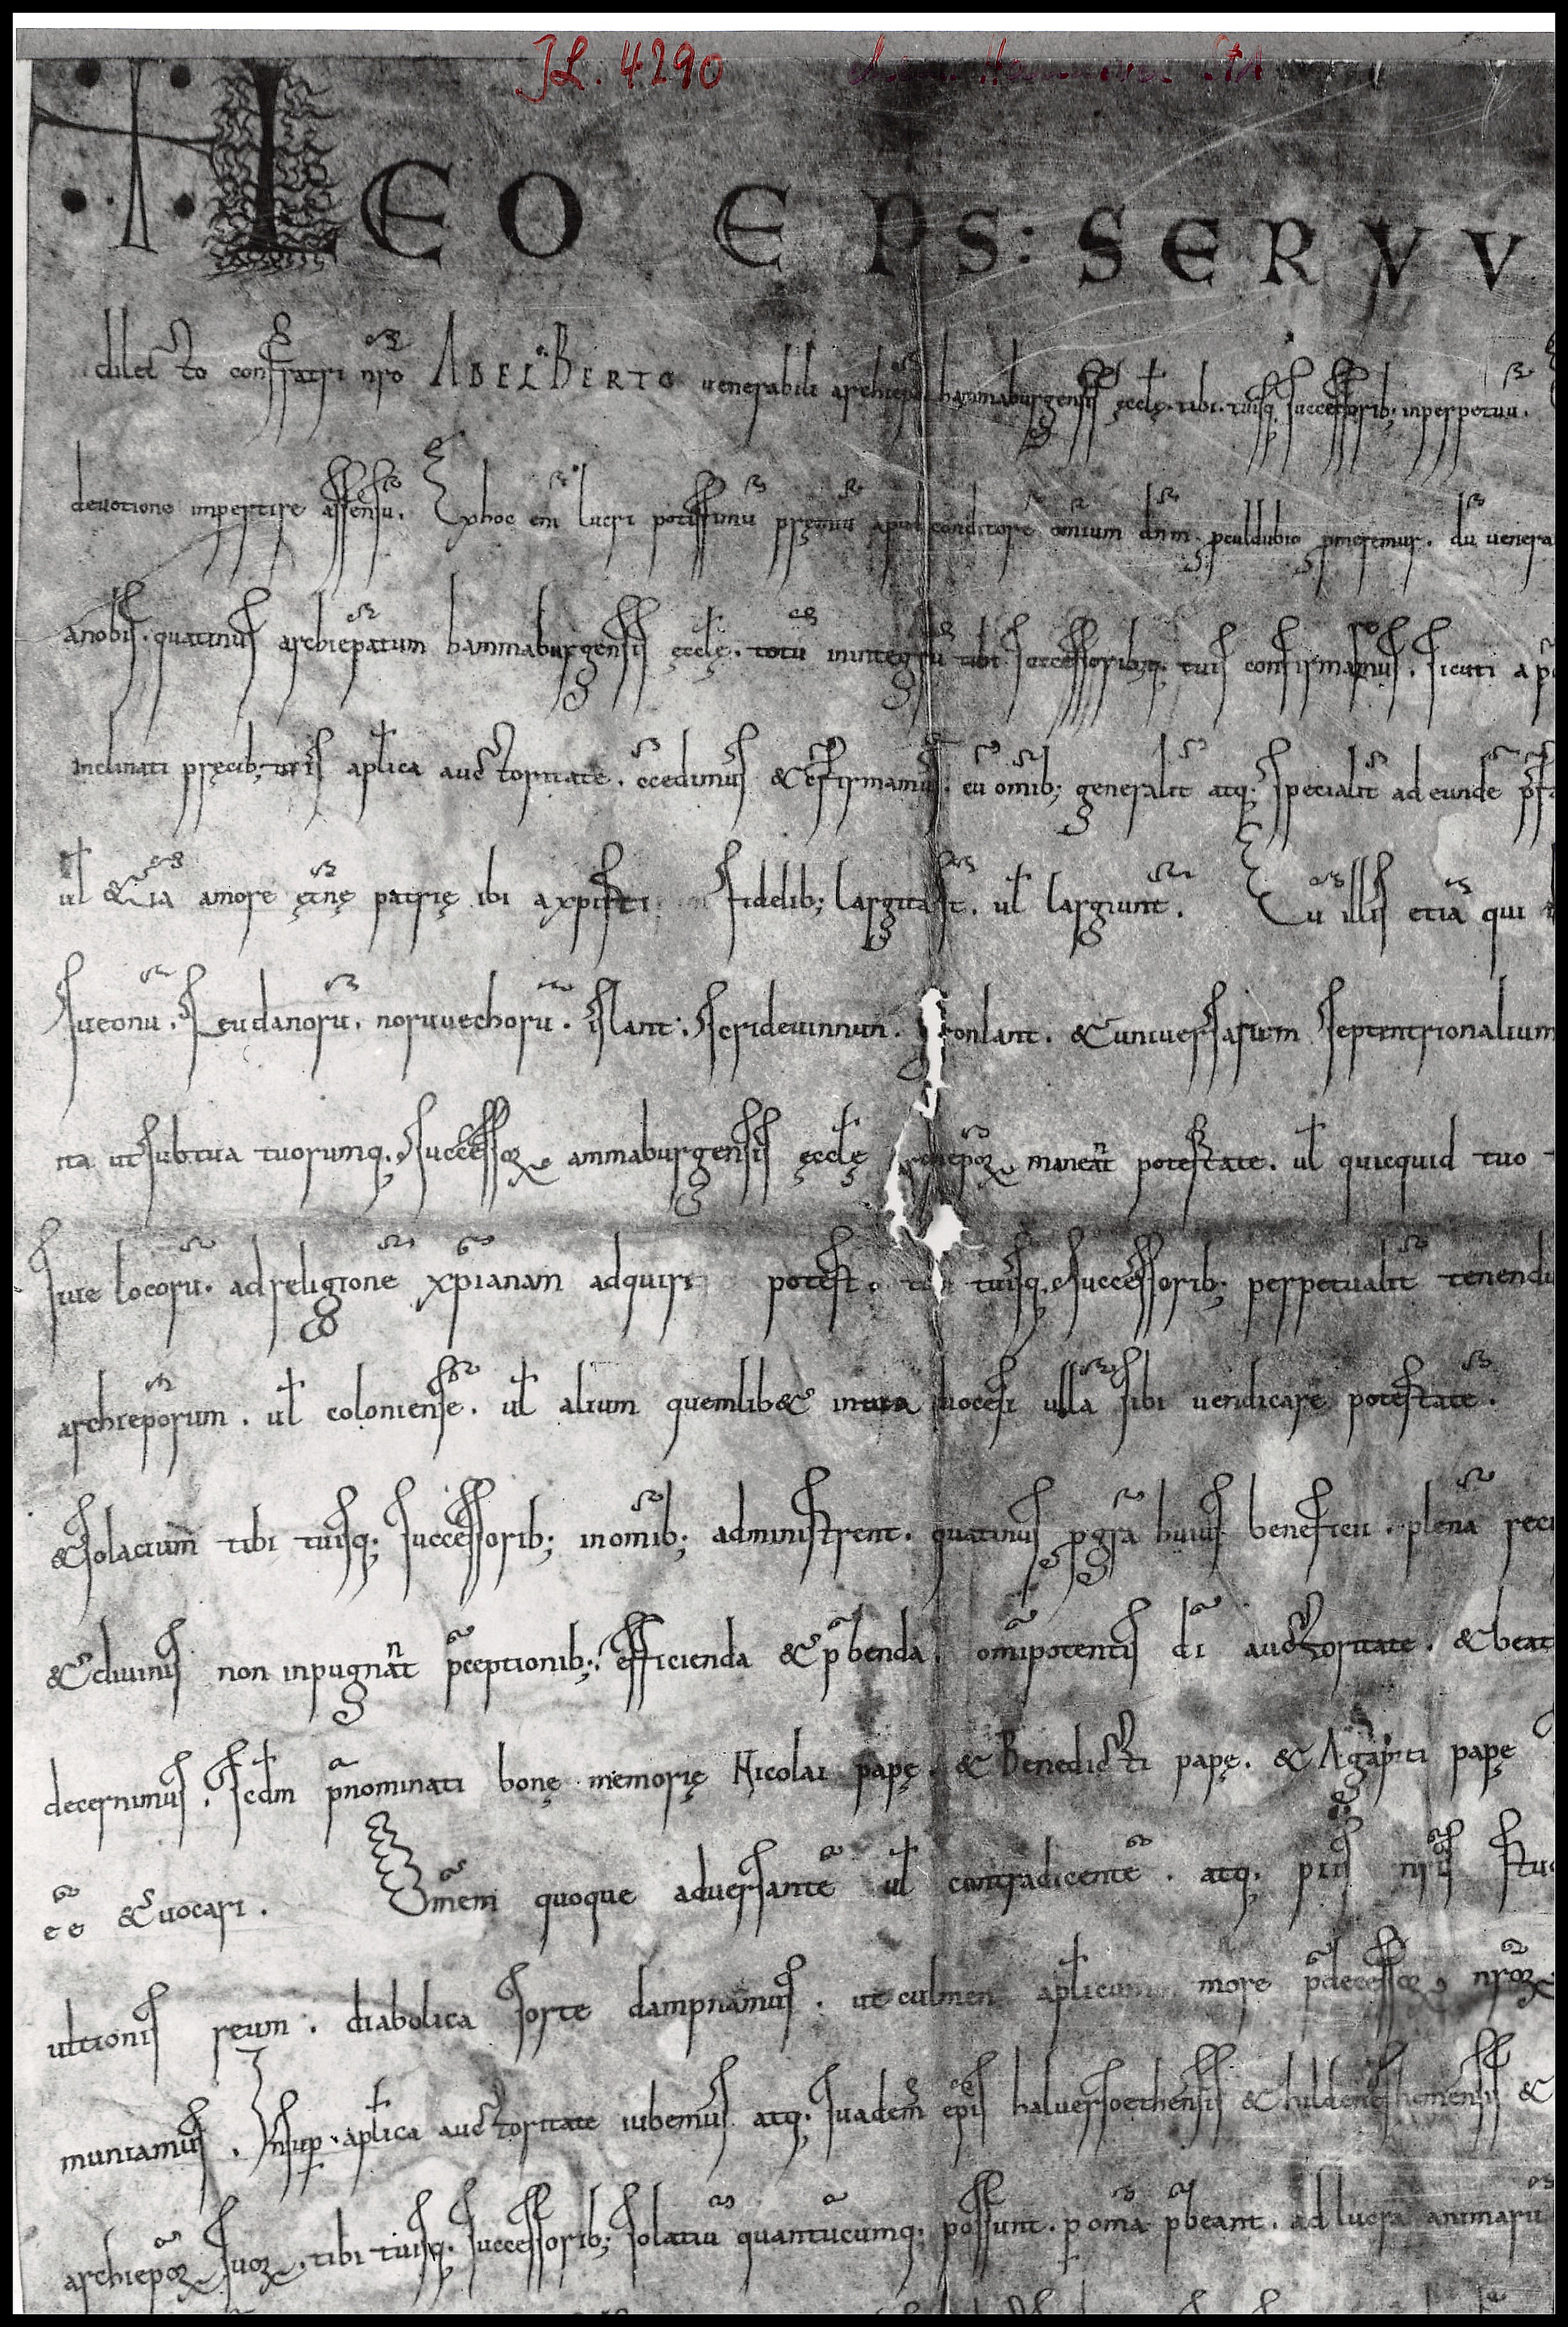 JL. 4290
LEO EPS: SERVV
dilecto confratri nro ADELBERTO venerabili archiepo hammaburgensis ęcclę. tibi. tuisq. successorib; inperpetuu.
devotione impertire assensu. Exhoc eni lucri potissimu pręmiu apud conditore omium dnm. pculdubio pmeremur. du venera
anobis. quatinus archiepatum hammaburgensis ęcclę. totu inintegru tibi successoribq. tuis confirmamus. sicuti a p
Inclinati pręcib; tuis aplica auctoritate. ccedimus & cfirmamus. cu omib; generalit atq. specialit ad eunde
ul & ia amore ętnę patrię ibi a xpisti fidelib; largita st. ul largiunt. Cu illis etia qui
sueonu. seu danoru. noruuechoru. islant. scridevinnun. gronlant. & universarum septentrionalium
ita ut sub tua tuorumq. successoꝝ ammaburgensis ęcclę archiepoꝝ maneat potestate. ul quicquid tuo
sive locoru. ad religione xpianam adquiri potest. tuisq. successorib; perpetualit tenendu
archieporum. ul coloniense. ul alium quemlib& in tua diocesi ulla sibi vendicare potestate.
& solacium tibi tuisq; successorib; in omib; administrent. quatinus p gra huius beneficii. plena reci
& divinis non inpugnant pceptionib; efficienda & pbenda. omipotentis di auctoritate. & beat
decernimus. scdm pnominati bonę memorię Nicolai papę. & Benedicti papę. & Agapiti papę
ee & vocari. Omem quoque adversante ul contradicente. atq. piis nris stud
ultionis reum. diabolica sorte dampnamus. ut culmen aplicum more pdecessoꝝ nroꝝ
muniamus. Insup aplica auctoritate iubemus atq. suadem epis halverstethensis & hildeneshemensis &
archiepoꝝ suoꝝ. tibi tuisq. successorib; solatiu quantucumq. possunt. p oma pbeant. ad lucra animaru